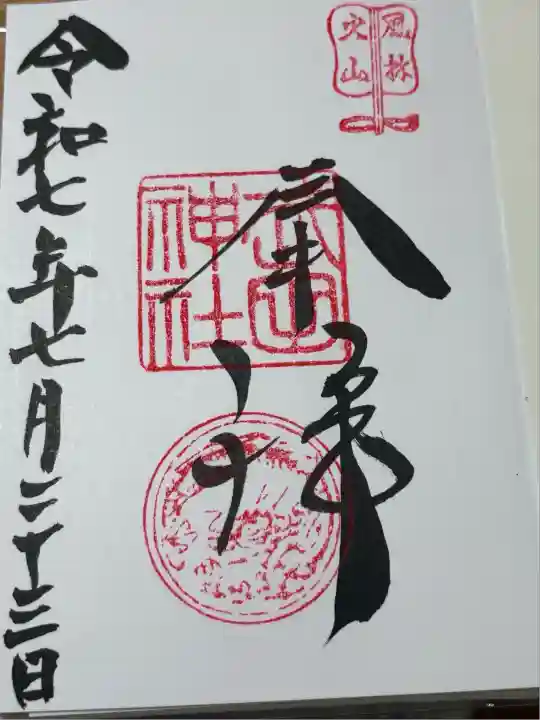 風林
火山
奉拝
武田
神社
令和七年七月二十三日